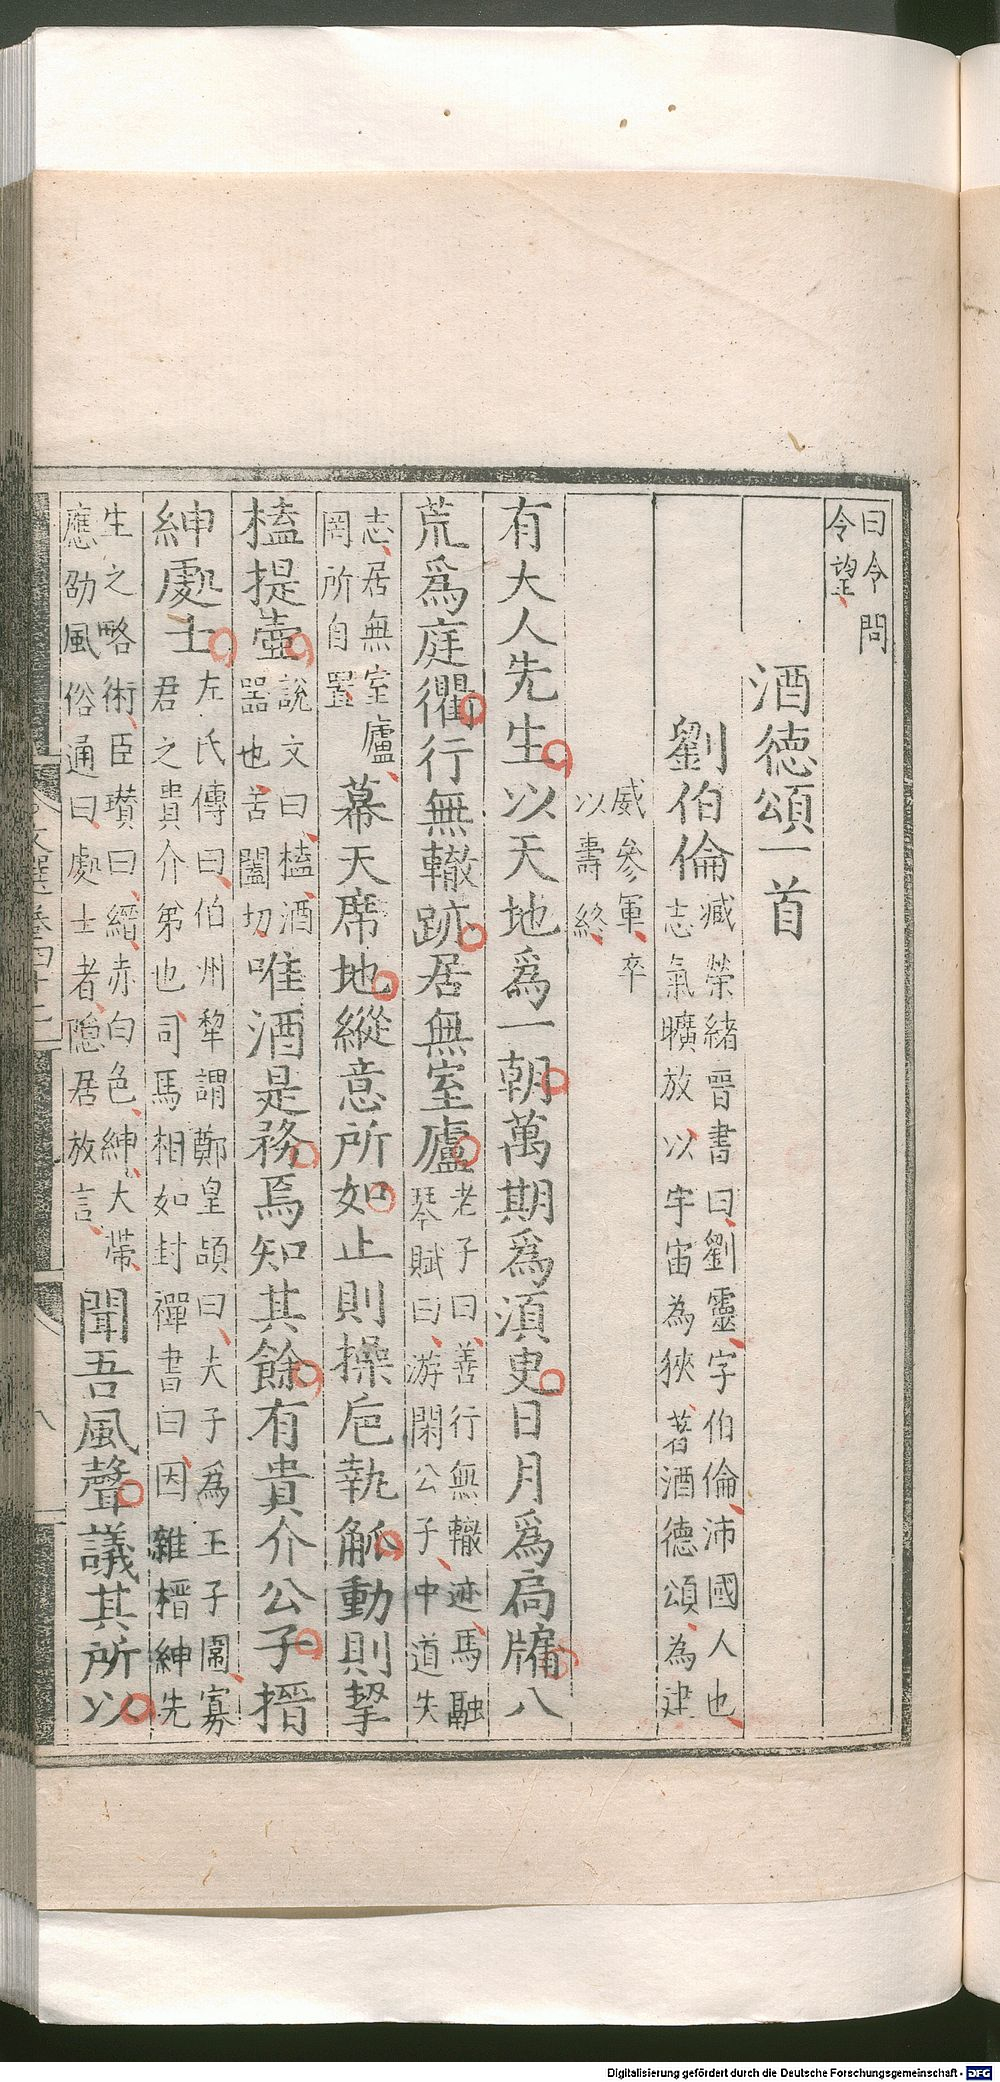 曰令問
令望
酒德頌一首
劉伯倫臧榮緒晉書曰劉靈字伯倫沛國人也
志氣曠放以宇宙為狹著酒德頌為建
威參軍卒
以壽終
有大人先生以天地爲一朝萬期爲須臾日月爲扃牖八
荒爲庭衢行無轍跡居無室廬老子曰善行無轍迹馬融
琴賦曰游閑公子中道失
志居無室廬
罔所自置
幕天席地縱意所如止則操卮執觚動則挈
榼提壺說文曰榼酒
器也苦闔切
唯酒是務焉知其餘有貴介公子搢
紳處士左氏傳曰伯州犂謂鄭皇頡曰夫子為王子圍寡
君之貴介弟也司馬相如封禪書曰因雜榗紳先
生之略術臣瓉曰縉赤白色紳大帶
應劭風俗通曰處士者隱居放言
聞吾風聲議其所以
文選卷四十
八
Digitalisierung gefördert durch die Deutsche Forschungsgemeinschaft - DFG